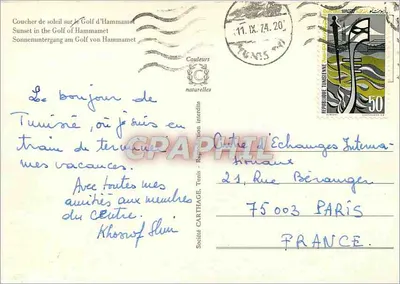 Coucher de soleil sur le Golf d'Hammamet
Sunset in the Golf of Hammamet
Sonnenuntergang am Golf von Hammamet
Couleurs
C
naturelles
11. IX. 74. 20
TUNIS
REPUBLIQUE TUNISIENNE
50
Le bonjour de
Tunisie, où je suis en
train de terminer
mes vacances.
Avec toutes mes
amitiés aux membres
du Centre.
Société CARTHAGE, Tunis
interdite
GRAPHTI
Centre d'Echanges Interna-
tionaux
21, Rue Béranger
75003 PARIS
FRANCE.